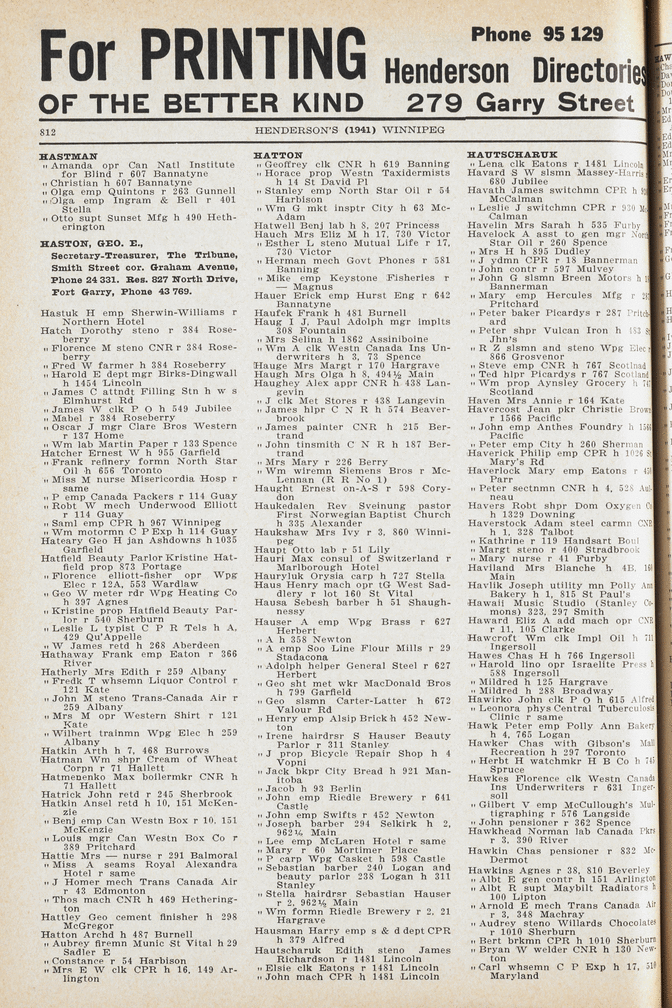 For PRINTING
OF THE BETTER KIND
Phone 95 129
Henderson Directories
279 Garry Street
812
HENDERSON'S (1941) WINNIPEG
HASTMAN
" Amanda opr Can Natl Institute
for Blind r 607 Bannatyne
" Christian h 607 Bannatyne
" Olga emp Quintons r 263 Gunnell
" Olga emp Ingram & Bell r 401
Stella
" Otto supt Sunset Mfg h 490 Heth-
erington
HASTON, GEO. E.,
Secretary-Treasurer, The Tribune,
Smith Street cor. Graham Avenue,
Phone 24 331. Res. 827 North Drive,
Fort Garry, Phone 43 769.
Hastuk H emp Sherwin-Williams r
Northern Hotel
Hatch Dorothy steno r 384 Rose-
berry
" Florence M steno CNR r 384 Rose-
berry
" Fred W farmer h 384 Roseberry
" Harold E dept mgr Birks-Dingwall
h 1454 Lincoln
" James C attndt Filling Stn h w s
Elmhurst Rd
" James W clk P O h 549 Jubilee
" Mabel r 384 Roseberry
" Oscar J mgr Clare Bros Western
r 137 Home
" Wm lab Martin Paper r 133 Spence
Hatcher Ernest W h 955 Garfield
" Frank refinery formn North Star
Oil h 656 Toronto
" Miss M nurse Misericordia Hosp r
same
" P emp Canada Packers r 114 Guay
" Robt W mech Underwood Elliott
r 114 Guay
" Saml emp CPR h 967 Winnipeg
" Wm motormn C P Exp h 114 Guay
Hateary Geo H jan Ashdowns h 1035
Garfield
Hatfield Beauty Parlor Kristine Hat-
field prop 873 Portage
" Florence elliott-fisher opr Wpg
Elec r 12A, 553 Wardlaw
" Geo W meter rdr Wpg Heating Co
h 397 Agnes
" Kristine prop Hatfield Beauty Par-
lor r 540 Sherburn
" Leslie L typist C P R Tels h A,
429 Qu'Appelle
" W James retd h 268 Aberdeen
Hathaway Frank emp Eaton r 366
River
Hatherly Mrs Edith r 259 Albany
" Fredk T whsemn Liquor Control r
121 Kate
" John M steno Trans-Canada Air r
259 Albany
" Mrs M opr Western Shirt r 121
Kate
" Wilbert trainmn Wpg Elec h 259
Albany
Hatkin Arth h 7, 468 Burrows
Hatman Wm shpr Cream of Wheat
Corpn r 71 Hallett
Hatmenenko Max boilermkr CNR h
71 Hallett
Hatrick John retd r 245 Sherbrook
Hatkin Ansel retd h 10, 151 McKen-
zie
" Benj emp Can West Box r 10, 151
McKenzie
" Louis mgr Can Westn Box Co r
389 Pritchard
Hattie Mrs — nurse r 291 Balmoral
" Miss A seams Royal Alexandra
Hotel r same
" J Homer mech Trans Canada Air
r 43 Edmonton
" Thos mach CNR h 469 Hethering-
ton
Hattley Geo cement finisher h 298
McGregor
Hatton Archd h 487 Burnell
" Aubrey firemn Munic St Vital h 29
Sadler E
" Constance r 54 Harbison
" Mrs E W clk CPR h 16, 149 Ar-
lington
HATTON
" Geoffrey clk CNR h 619 Banning
" Horace prop Westn Taxidermists
h 14 St David Pl
" Stanley emp North Star Oil r 54
Harbison
" Wm G mkt insptr City h 63 Mc-
Adam
Hatwell Benj lab h 8, 207 Princess
Hauch Mrs Eliz M h 17, 730 Victor
" Esther L steno Mutual Life r 17,
730 Victor
" Herman mech Govt Phones r 581
Banning
" Mike emp Keystone Fisheries r
— Magnus
Hauer Erick emp Hurst Eng r 642
Bannatyne
Haufek Frank h 481 Burnell
Haug I J, Paul Adolph mgr implts
308 Fountain
" Mrs Selina h 1862 Assiniboine
" Wm A clk Westn Canada Ins Un-
derwriters h 3, 73 Spence
Hauge Mrs Margt r 170 Hargrave
Haugh Mrs Olga h 8, 494½ Main
Haughey Alex appr CNR h 438 Lan-
gevin
" J clk Met Stores r 438 Langevin
" James hlpr C N R h 574 Beaver-
brook
" James painter CNR h 215 Ber-
trand
" John tinsmith C N R h 187 Ber-
trand
" Mrs Mary r 226 Berry
" Wm wiremn Siemens Bros r Mc-
Lennan (R R No 1)
Haught Ernest on-A-S r 598 Cory-
don
Haukedalen Rev Sveinung pastor
First Norwegian Baptist Church
h 335 Alexander
Haukshaw Mrs Ivy r 3, 860 Winni-
peg
Haupt Otto lab r 51 Lily
Hauri Max consul of Switzerland r
Marlborough Hotel
Hauryluk Orysia carp h 727 Stella
Haus Henry mach opr tG West Sad-
dlery r lot 160 St Vital
Hausa Sebesh barber h 51 Shaugh-
nessy
Hauser A emp Wpg Brass r 627
Herbert
" A h 358 Newton
" A emp Soo Line Flour Mills r 29
Stadacona
" Adolph helper General Steel r 627
Herbert
" Geo sht met wkr MacDonald Bros
h 799 Garfield
" Geo slsmn Carter-Latter h 672
Valour Rd
" Henry emp Alsip Brick h 452 New-
ton
" Irene hairdrsr S Hauser Beauty
Parlor r 311 Stanley
" J prop Bicycle Repair Shop h 4
Vopni
" Jack bkpr City Bread h 921 Man-
itoba
" Jacob h 93 Berlin
" John emp Riedle Brewery r 641
Castle
" John emp Swifts r 452 Newton
" Joseph barber 294 Selkirk h 2,
962½ Main
" Lee emp McLaren Hotel r same
" Mary r 60 Mortimer Place
" P carp Wpg Casket h 598 Castle
" Sebastian barber 240 Logan and
beauty parlor 238 Logan h 311
Stanley
" Stella hairdrsr Sebastian Hauser
r 2, 962½ Main
" Wm formn Riedle Brewery r 2, 21
Hargrave
Hausman Harry emp s & d dept CPR
h 379 Alfred
Hautscharuk Edith steno James
Richardson r 1481 Lincoln
" Elsie clk Eatons r 1481 Lincoln
" John mach CPR h 1481 Lincoln
HAUTSCHARUK
" Lena clk Eatons r 1481 Lincoln
Havard S W slsmn Massey-Harris r
680 Jubilee
Havath James switchmn CPR h
McCalman
" Leslie J switchmn CPR r 930 Mc-
Calman
Havelin Mrs Sarah h 535 Furby
Havelock A asst to gen mgr North
Star Oil r 260 Spence
" Mrs H h 895 Dudley
" J ydmn CPR r 18 Bannerman
" John contr h 597 Mulvey
" John G slsmn Breen Motors h
Bannerman
" Mary emp Hercules Mfg r
Pritchard
" Peter baker Picardys r 287 Pritch-
ard
" Peter shpr Vulcan Iron h 183 St
Jhn's
" R Z slsmn and steno Wpg Elec r
866 Grosvenor
" Steve emp CNR h 767 Scotland
" Ted hlpr Picardys r 767 Scotland
" Wm prop Aynsley Grocery h 767
Scotland
Haven Mrs Annie r 164 Kate
Havercost Jean pkr Christie Brown
r 1566 Pacific
" John emp Anthes Foundry h 1566
Pacific
" Peter emp City h 260 Sherman
Haverick Philip emp CPR h 1026 St
Mary's Rd
Haverlock Mary emp Eatons r
Parr
" Peter sectmn CNR h 4, 528 Aul-
neau
Havers Robt shpr Dom Oxygen Co
h 1329 Downing
Haverstock Adam steel carmn CNR
h 1, 328 Talbot
" Kathrine r 119 Handsart Boul
" Margt steno r 400 Stradbrook
" Mary nurse r 41 Purby
Haviland Mrs Blanche h 4B,
Main
Havlik Joseph utility mn Polly Ann
Bakery h 1, 815 St Paul's
Hawaii Music Studio (Stanley Co-
mons) 323, 297 Smith
Haward Eliz A add mach opr CNR
r 11, 105 Clarke
Hawcroft Wm clk Impl Oil h
Ingersoll
Hawes Chas H h 766 Ingersoll
" Harold lino opr Israelite Press h
588 Ingersoll
" Mildred h 125 Hargrave
" Mildred h 288 Broadway
Hawirko John clk P O h 615 Alfred
" Leonora phys Central Tuberculosis
Clinic r same
Hawk Peter emp Polly Ann Bakery
h 4, 765 Logan
Hawker Chas with Gibson's Mall
Recreation h 297 Toronto
" Herbt H watchmkr H B Co h
Spruce
Hawkes Florence clk Westn Canada
Ins Underwriters r 631 Inger-
soll
" Gilbert V emp McCullough's Mul-
tigraphing r 576 Langside
" John pensioner r 362 Spence
Hawkhead Norman lab Canada Pkrs
r 3, 390 River
Hawkin Chas pensioner r 832 Mc-
Dermot
Hawkins Agnes r 38, 810 Beverley
" Albt E gen contr h 151 Arlington
" Albt R supt Maybilt Radiators h
100 Lipton
" Arnold E mech Trans Canada Air
r 3, 348 Machray
" Audrey steno Willards Chocolates
r 1010 Sherburn
" Bert brkmn CPR h 1010 Sherburn
" Bryan W welder CNR h 130 New-
ton
" Carl whsemn C P Exp h 17,
Maryland